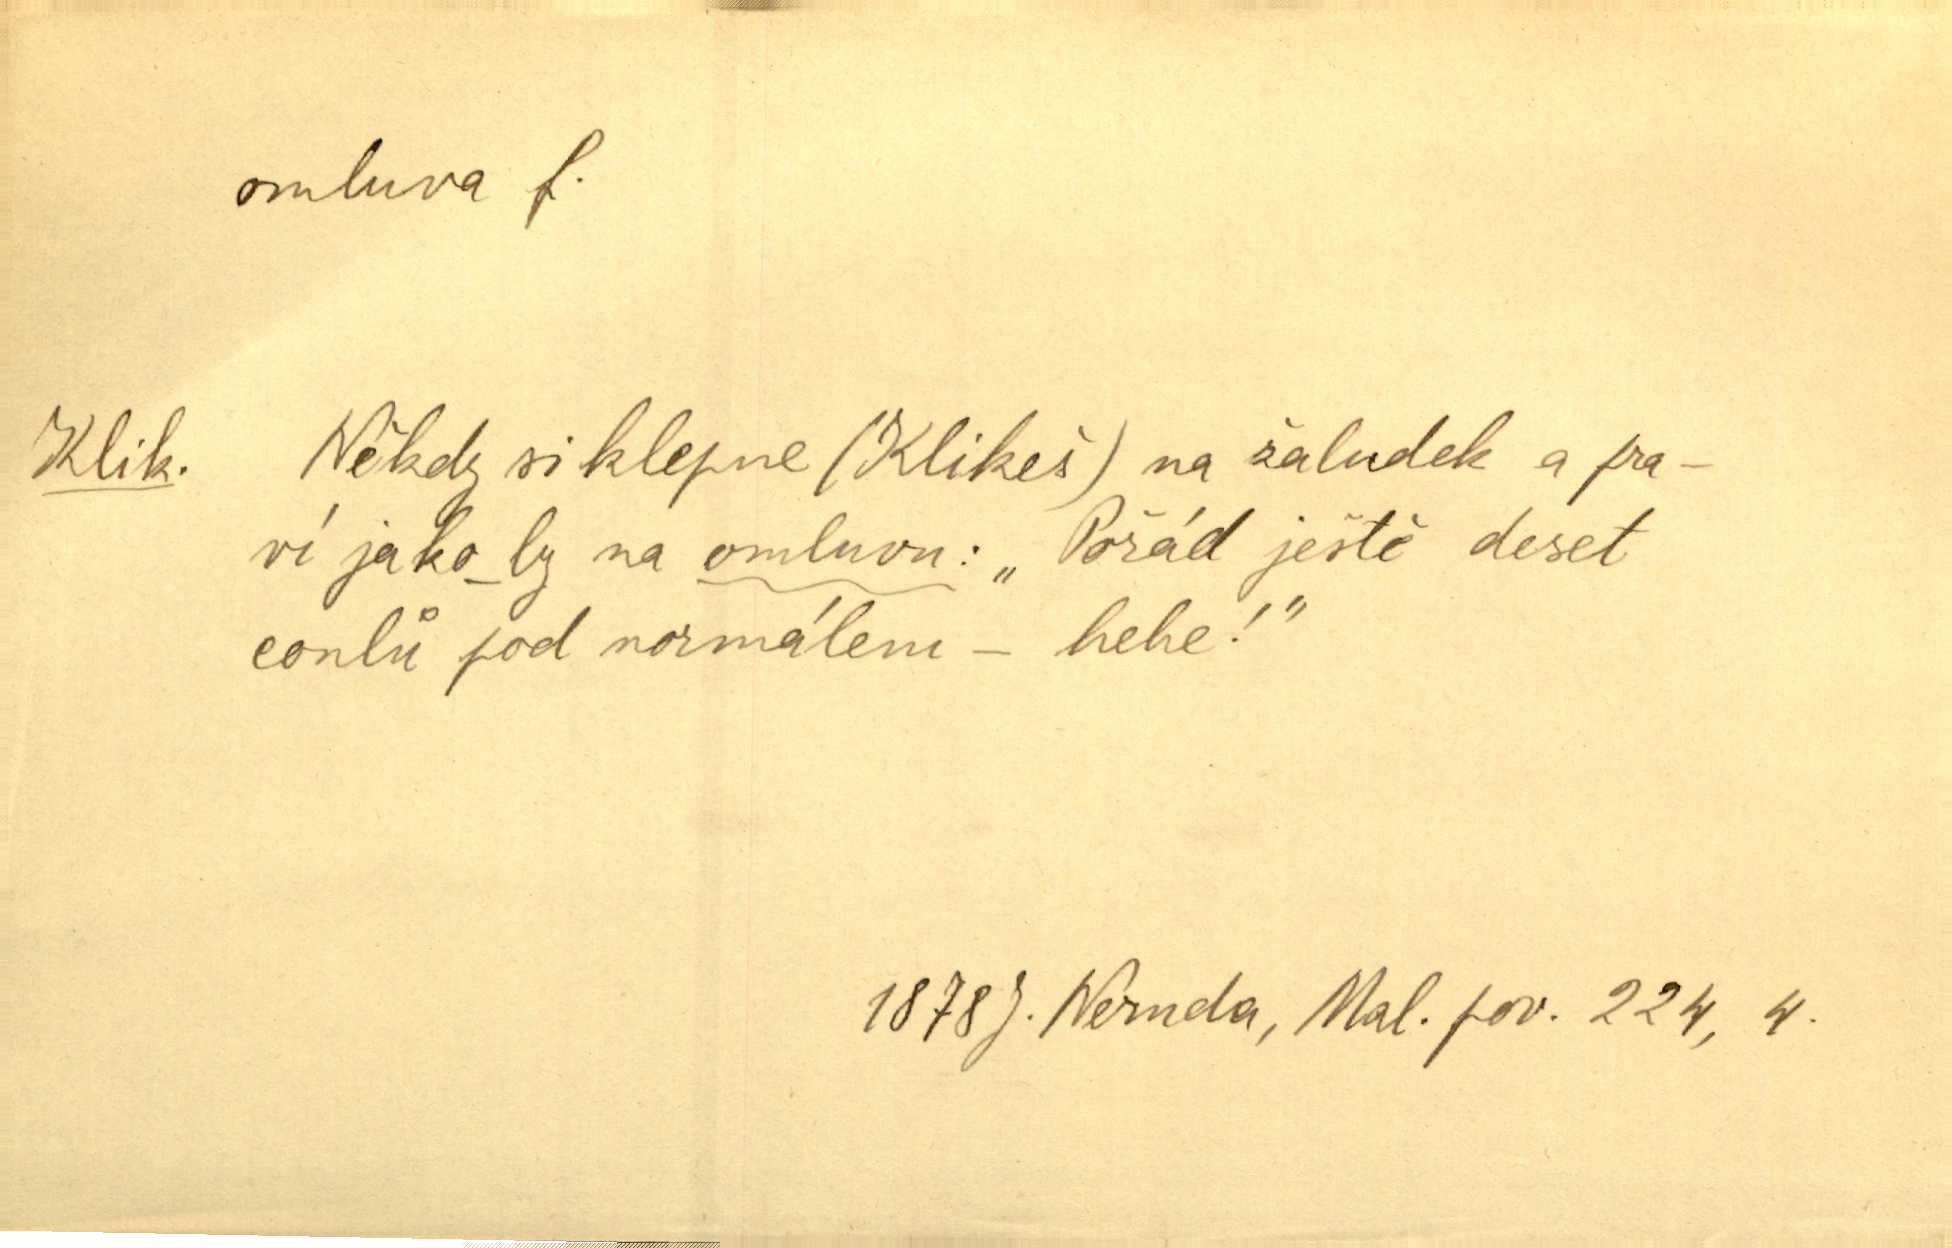 omluva f.
Klik. Někdy si klepne (Klikeš) na žaludek a pra-
ví jako_by na omluvu: „Pořád ještě deset
conlů pod normálem – hehe!"
1878 J. Neruda, Mal. pov. 224, 4.